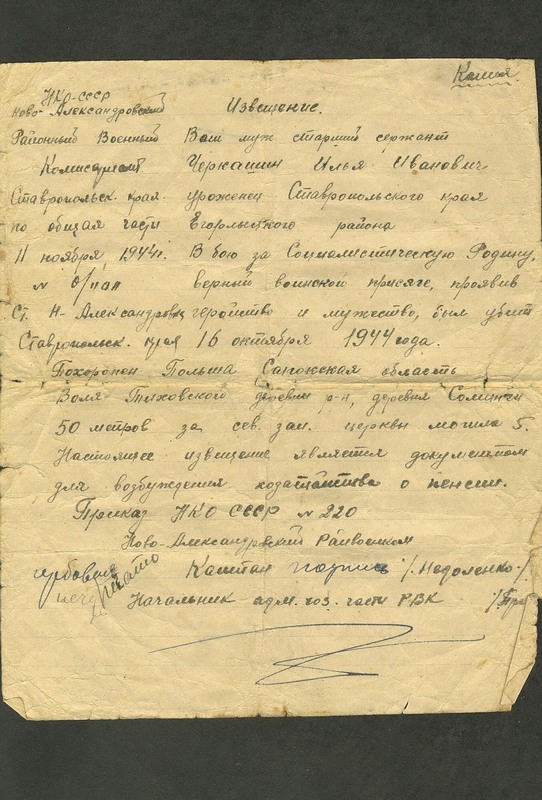 Копия.
НКО-СССР
Ново-Александровский Извещение.
Районный Военный Ваш муж старший сержант
Комисариат Черкашин Илья Иванович
Ставропольск. края уроженец Ставропольского края
по общая части Егорлыцкого района
11 ноября 1944г. В бою за Социалистическую Родину,
№ верный воинской присяге, проявив
Ст. Н-Александровск геройство и мужество, был убит
Ставропольск. края 16 октября 1944 года.
Похоронен Польша Саножская область
Воля-Пиховского деревни р-н, деревня
50 метров за сев. зап. церквы могила 5.
Настоящее извещение является документом
для возбуждения ходатайства о пенсии.
Приказ НКО СССР № 220
Ново-Александровский Райвоенком
гербовая Капитан подпись /Недоленко/
печать
Начальник адм. хоз. части РВК